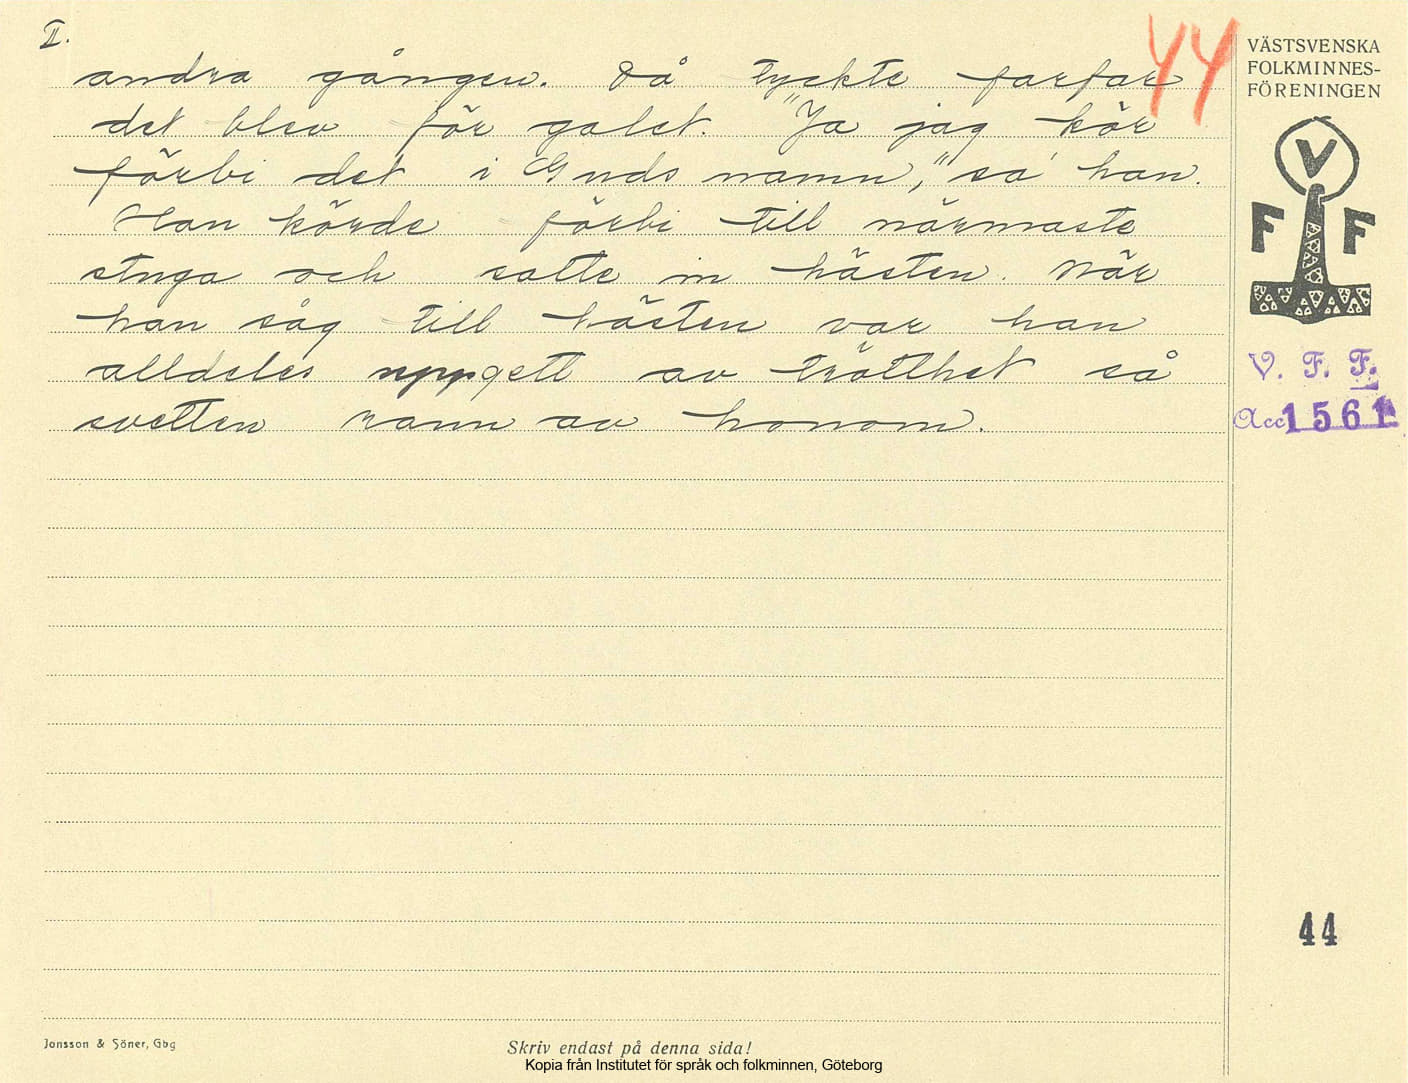 II.
44
andra gången. Då tyckte farfar
det blev för galet. "Ja jag kör
förbi det i Guds namn," sa han.
Han körde förbi till närmaste
stuga och satte in hästen. När
han såg till hästen var han
alldeles uppgett av trötthet så
svetten rann av honom.
VÄSTSVENSKA
FOLKMINNES-
FÖRENINGEN
V
F F
V. F. F.
Acc 1561
44
Jonsson & Söner, Gbg
Skriv endast på denna sida!
Kopia från Institutet för språk och folkminnen, Göteborg